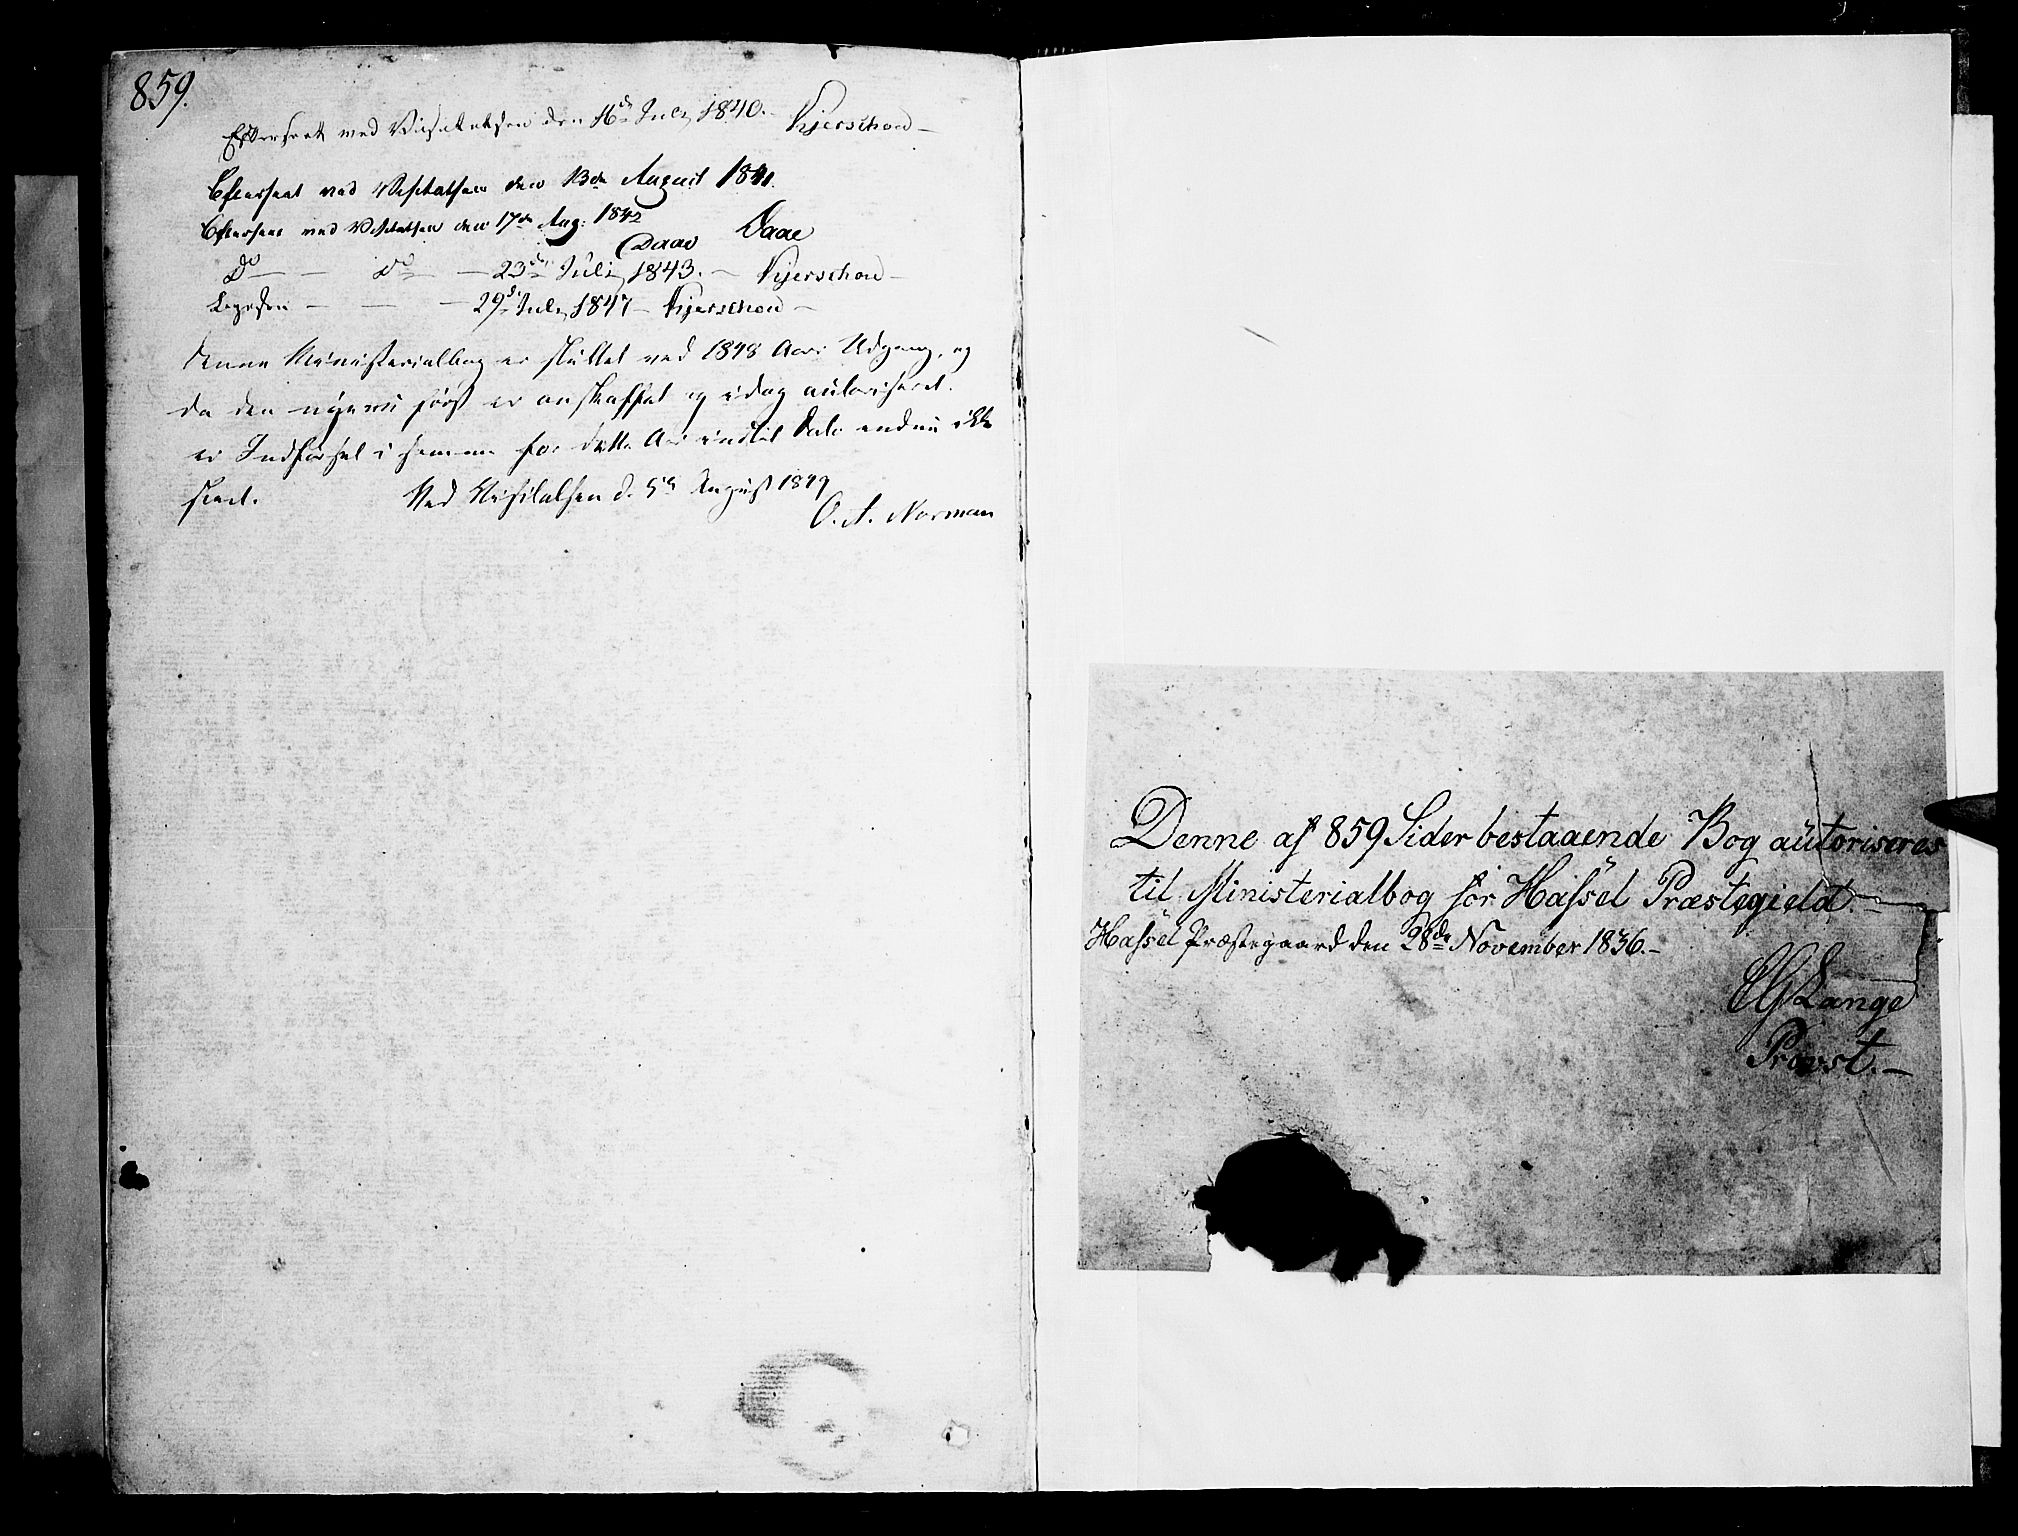 859.
Efterseet ved Visitatsen den 16de Juli 1840. – Kjerschow –
Efterseet ved Visitatsen den 13de August 1841.
Daae
Efterseet ved Visitatsen den 17de Aug: 1842
Daae
Do – – Do – 23de Juli 1843. – Kjerschow –
Ligesaa – – – 29de Juli 1847 – Kjerschow –
Denne Ministerialbog er sluttet ved 1848 Aars Udgang, og
da den nye nu først er anskaffet og idag autoriseret.
er Indførsel i samme for dette Aar indtil Dato endnu ikke
skeet. Ved Visitatsen d. 5te August 1849
O. A. Norman
Denne af 859 Sider bestaaende Bog autoriseres
til Ministerialbog for Hassel Præstegield. –
Hassel Præstegaard den 28de November 1836. –
Lange
Provst. –